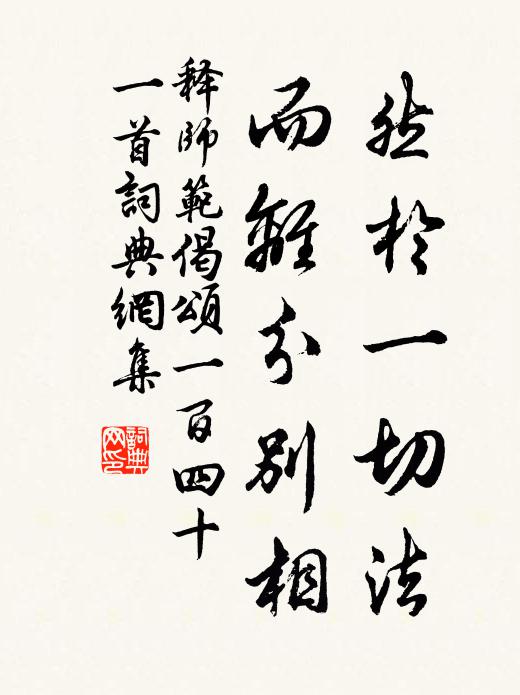 然於一切法
而離分別相
释師範偈頌一百四十
一首詞典網集
詞典網印